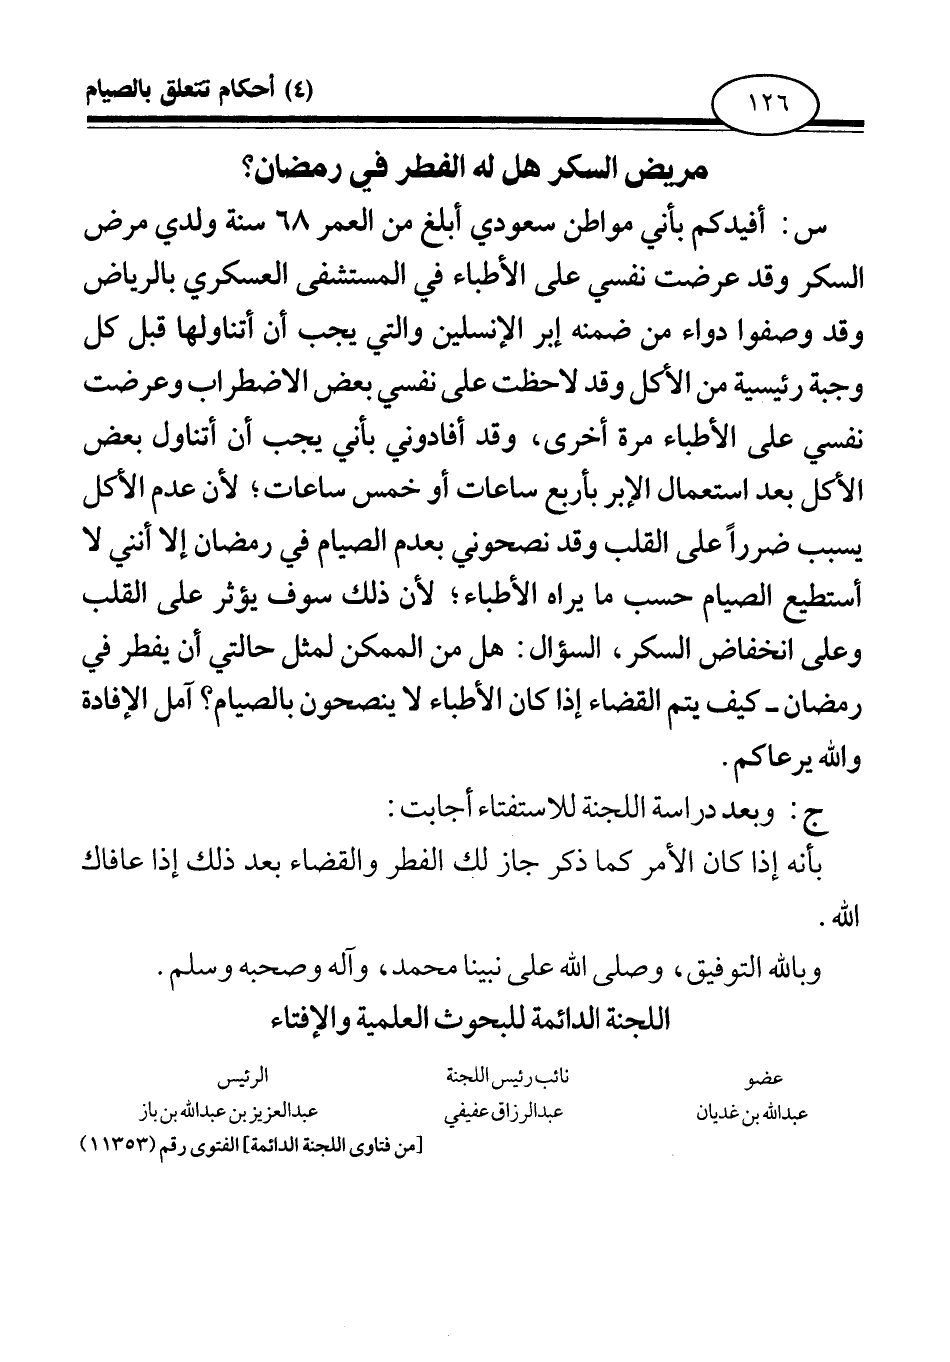 (٤) أحكام تتعلق بالصيام
١٢٦
مريض السكر هل له الفطر في رمضان؟
س: أفيدكم بأني مواطن سعودي أبلغ من العمر ٦٨ سنة ولدي مرض
السكر وقد عرضت نفسي على الأطباء في المستشفى العسكري بالرياض
وقد وصفوا دواء من ضمنه إبر الإنسلين والتي يجب أن أتناولها قبل كل
وجبة رئيسية من الأكل وقد لاحظت على نفسي بعض الاضطراب وعرضت
نفسي على الأطباء مرة أخرى، وقد أفادوني بأني يجب أن أتناول بعض
الأكل بعد استعمال الإبر بأربع ساعات أو خمس ساعات؛ لأن عدم الأكل
يسبب ضرراً على القلب وقد نصحوني بعدم الصيام في رمضان إلا أنني لا
أستطيع الصيام حسب ما يراه الأطباء؛ لأن ذلك سوف يؤثر على القلب
وعلى انخفاض السكر، السؤال: هل من الممكن لمثل حالتي أن يفطر في
رمضان ـ كيف يتم القضاء إذا كان الأطباء لا ينصحون بالصيام؟ آمل الإفادة
والله يرعاكم.
ج: وبعد دراسة اللجنة للاستفتاء أجابت:
بأنه إذا كان الأمر كما ذكر جاز لك الفطر والقضاء بعد ذلك إذا عافاك
الله.
وبالله التوفيق، وصلى الله على نبينا محمد، وآله وصحبه وسلم.
اللجنة الدائمة للبحوث العلمية والإفتاء
عضو نائب رئيس اللجنة الرئيس
عبدالله بن غديان عبدالرزاق عفيفي عبدالعزيز بن عبدالله بن باز
[من فتاوى اللجنة الدائمة] الفتوى رقم (١١٣٥٣)